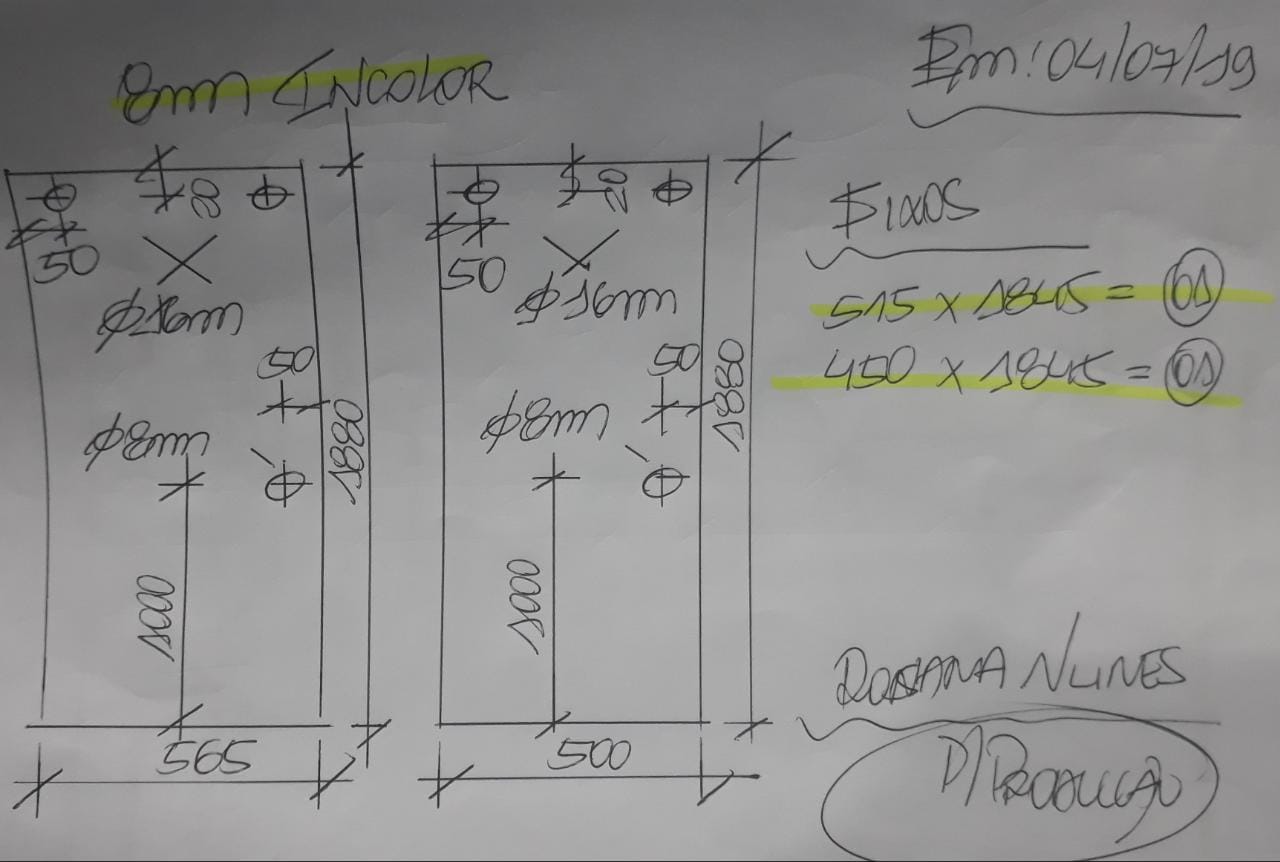 8mm INCOLOR
Em: 04/07/19
20
50
φ16mm
50
φ8mm
1880
1000
565
20
50
φ16mm
50
φ8mm
1880
1000
500
FIXOS
515 x 1845 = 01
450 x 1845 = 01
NUNES
P/PRODUÇÃO